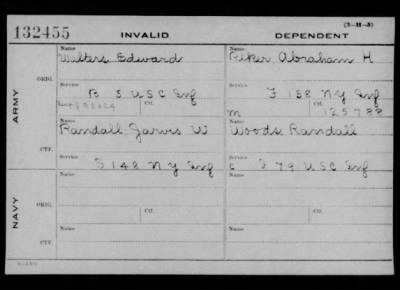 132455 INVALID DEPENDENT (3-H-3)
ARMY
ORIG.
Name Name
Walters Edward Riker, Abraham H
Service Service
B 5 USC Inf F 158 NY Inf
Ctf. Ctf.
M 125788
CTF.
Name Name
Randall Jarvis W Woods Randall
Service Service
I 148 N Y Inf C I 79 USC Inf
NAVY
ORIG.
Name Name
Service Service
Ctf. Ctf.
CTF.
Name Name
Service Service